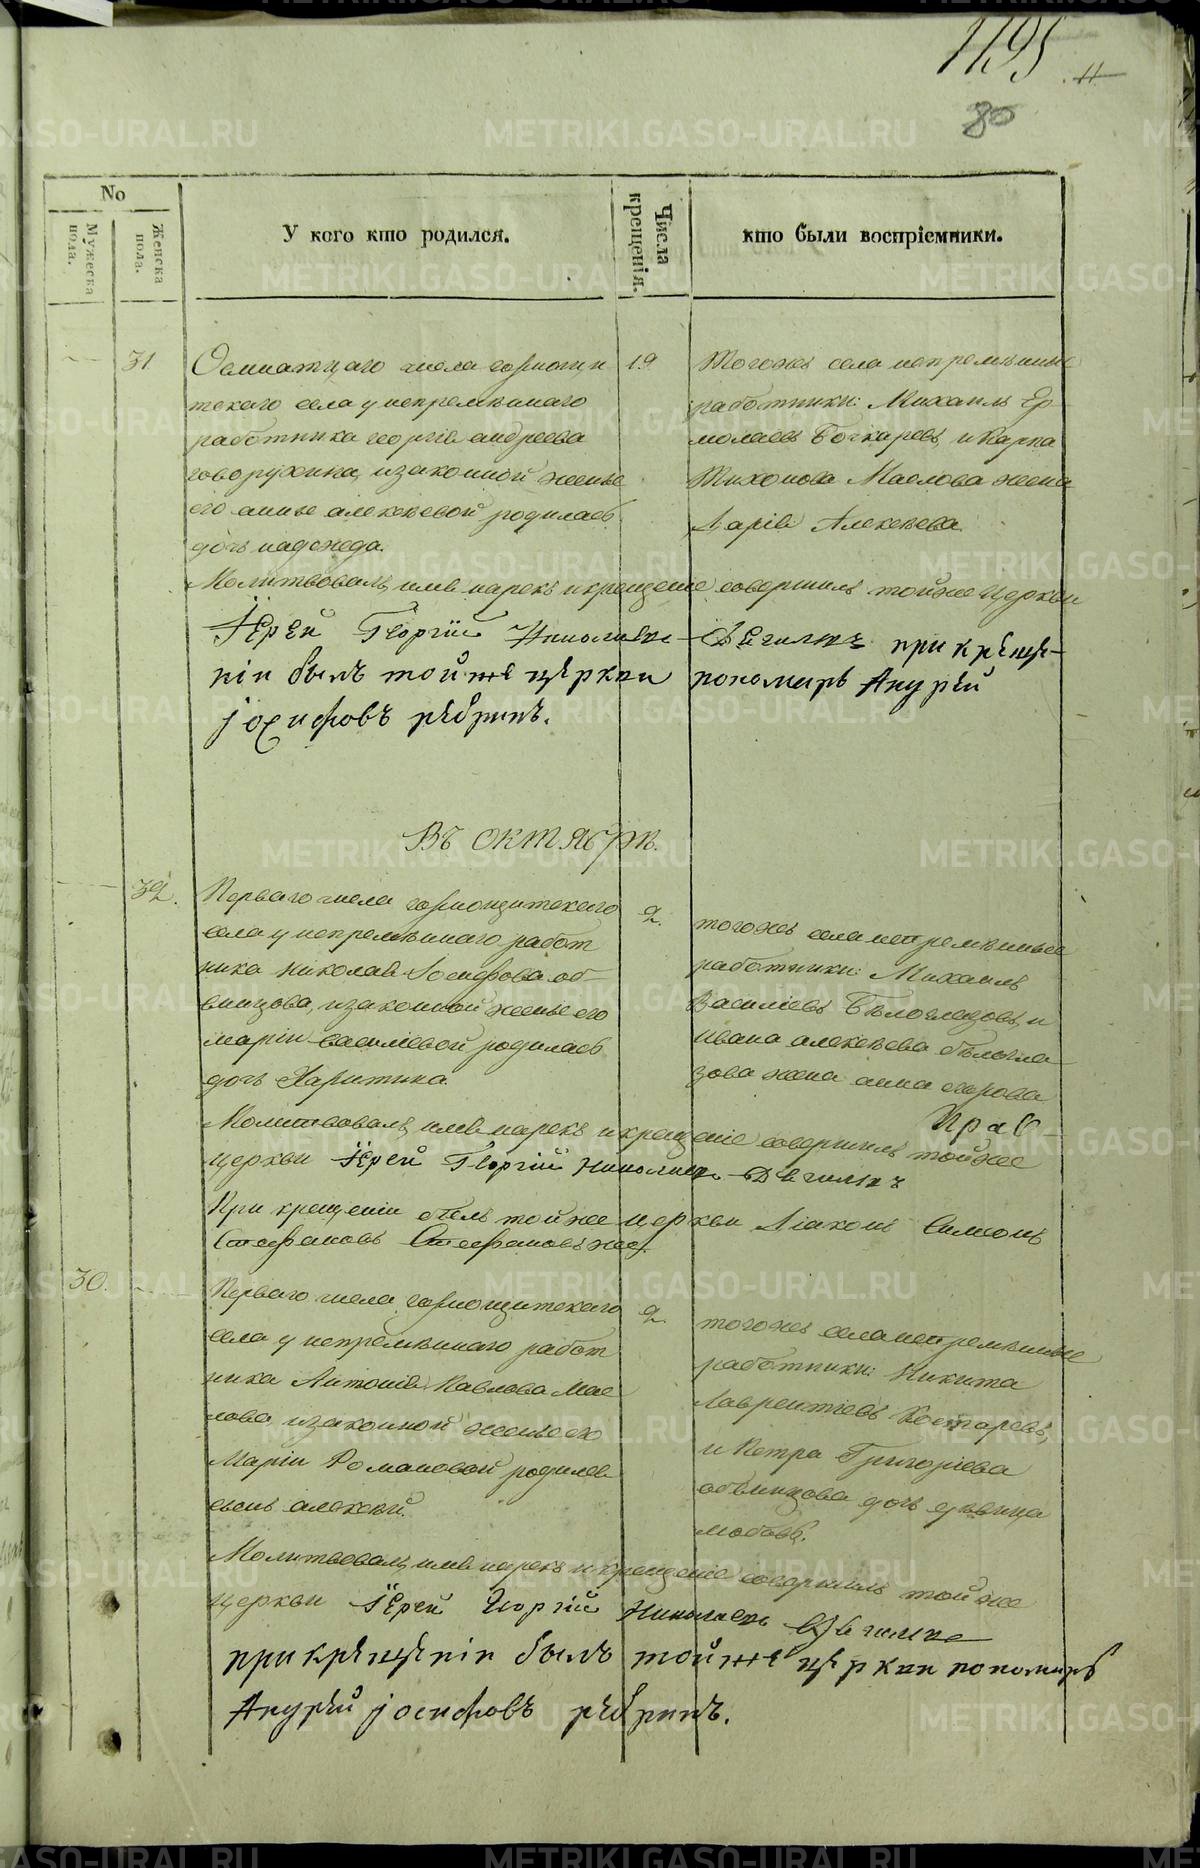 1195
80
No
Мужеска пола.
Женска пола.
У кого кто родился.
Числа крещенія.
кто были воспріемники.
31
Осмнатцаго числа горнощи
тскаго села у непремѣннаго
работника георгія андреева
говорухина, изаконной женые
его анные алексѣевой родилась
дочь надежда.
19
Тогожъ села непремѣнные
работники: Михаилъ Ер
молаевъ Бочкаревъ, и Карпа
Тихонова Маслова жена
Дарія Алексѣева.
Молитвовалъ, имя нарекъ и крещеніе совершилъ тойже Церкви
Іерей Георгій Николаевъ при креще-
ніи былъ той же церкви пономарь Андрей
Іосифовъ
Въ октябрѣ.
32.
Перваго числа горнощитскаго
села у непремѣннаго работ
ника николая Іосифова об
винцова, изаконной женые его
маріи василіевой родилась
дочь Харитина.
2.
тогожъ села непремѣнные
работники: Михаилъ
Василіевъ Бѣлоглазовъ, и
ивана алексѣева бѣлогла
зова жена анна егорова
Молитвовалъ, имя нарекъ и крещеніе совершилъ тойже
церкви Іерей Георгій Николаевъ
При крещеніи былъ тойже церкви Діаконъ Симеонъ
Стефановъ
30.
Перваго числа горнощитскаго
села у непремѣннаго работ
ника Антонія Павлова Мас
лова, изаконной женые его
Маріи Романовой родился
сынъ алексѣй.
2.
тогожъ села непремѣнные
работники: Никита
Лаврентіевъ Костаревъ,
и Петра Григоріева
обвинцова дочь дѣвица
любовь.
Молитвовалъ, имя нарекъ и крещеніе совершилъ тойже
церкви Іерей Георгій Николаевъ
при крещеніи былъ той же церкви пономарь
Андрей Іосифовъ
METRIKI.GASO-URAL.RU